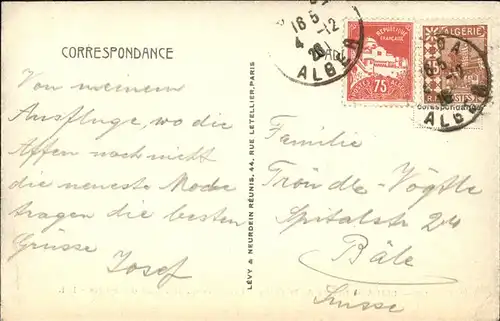 CORRESPONDANCE
Von meinem
Ausfluge, wo die
Affen noch nicht
die neueste Mode
tragen die besten
Grüsse
Josef
LÉVY & NEURDEIN RÉUNIS, 44, RUE LETELLIER, PARIS
16 5
4 -12
ALGER
REPUBLIQUE FRANÇAISE
75
ALGERIE
POSTES
ALGER
Familie
Tröndle-Vögtle
Spitalstr 24
Bâle
Suisse